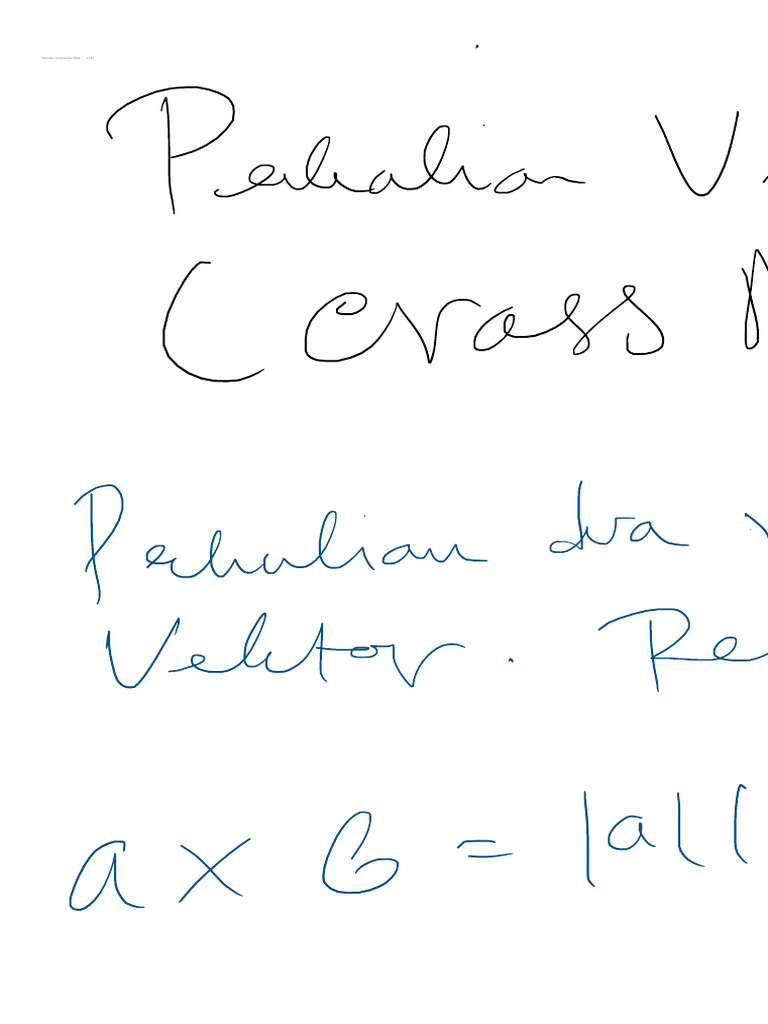 Perkalian V
(cross
Perkalian dua
Vektor. Re
a x b = |a||